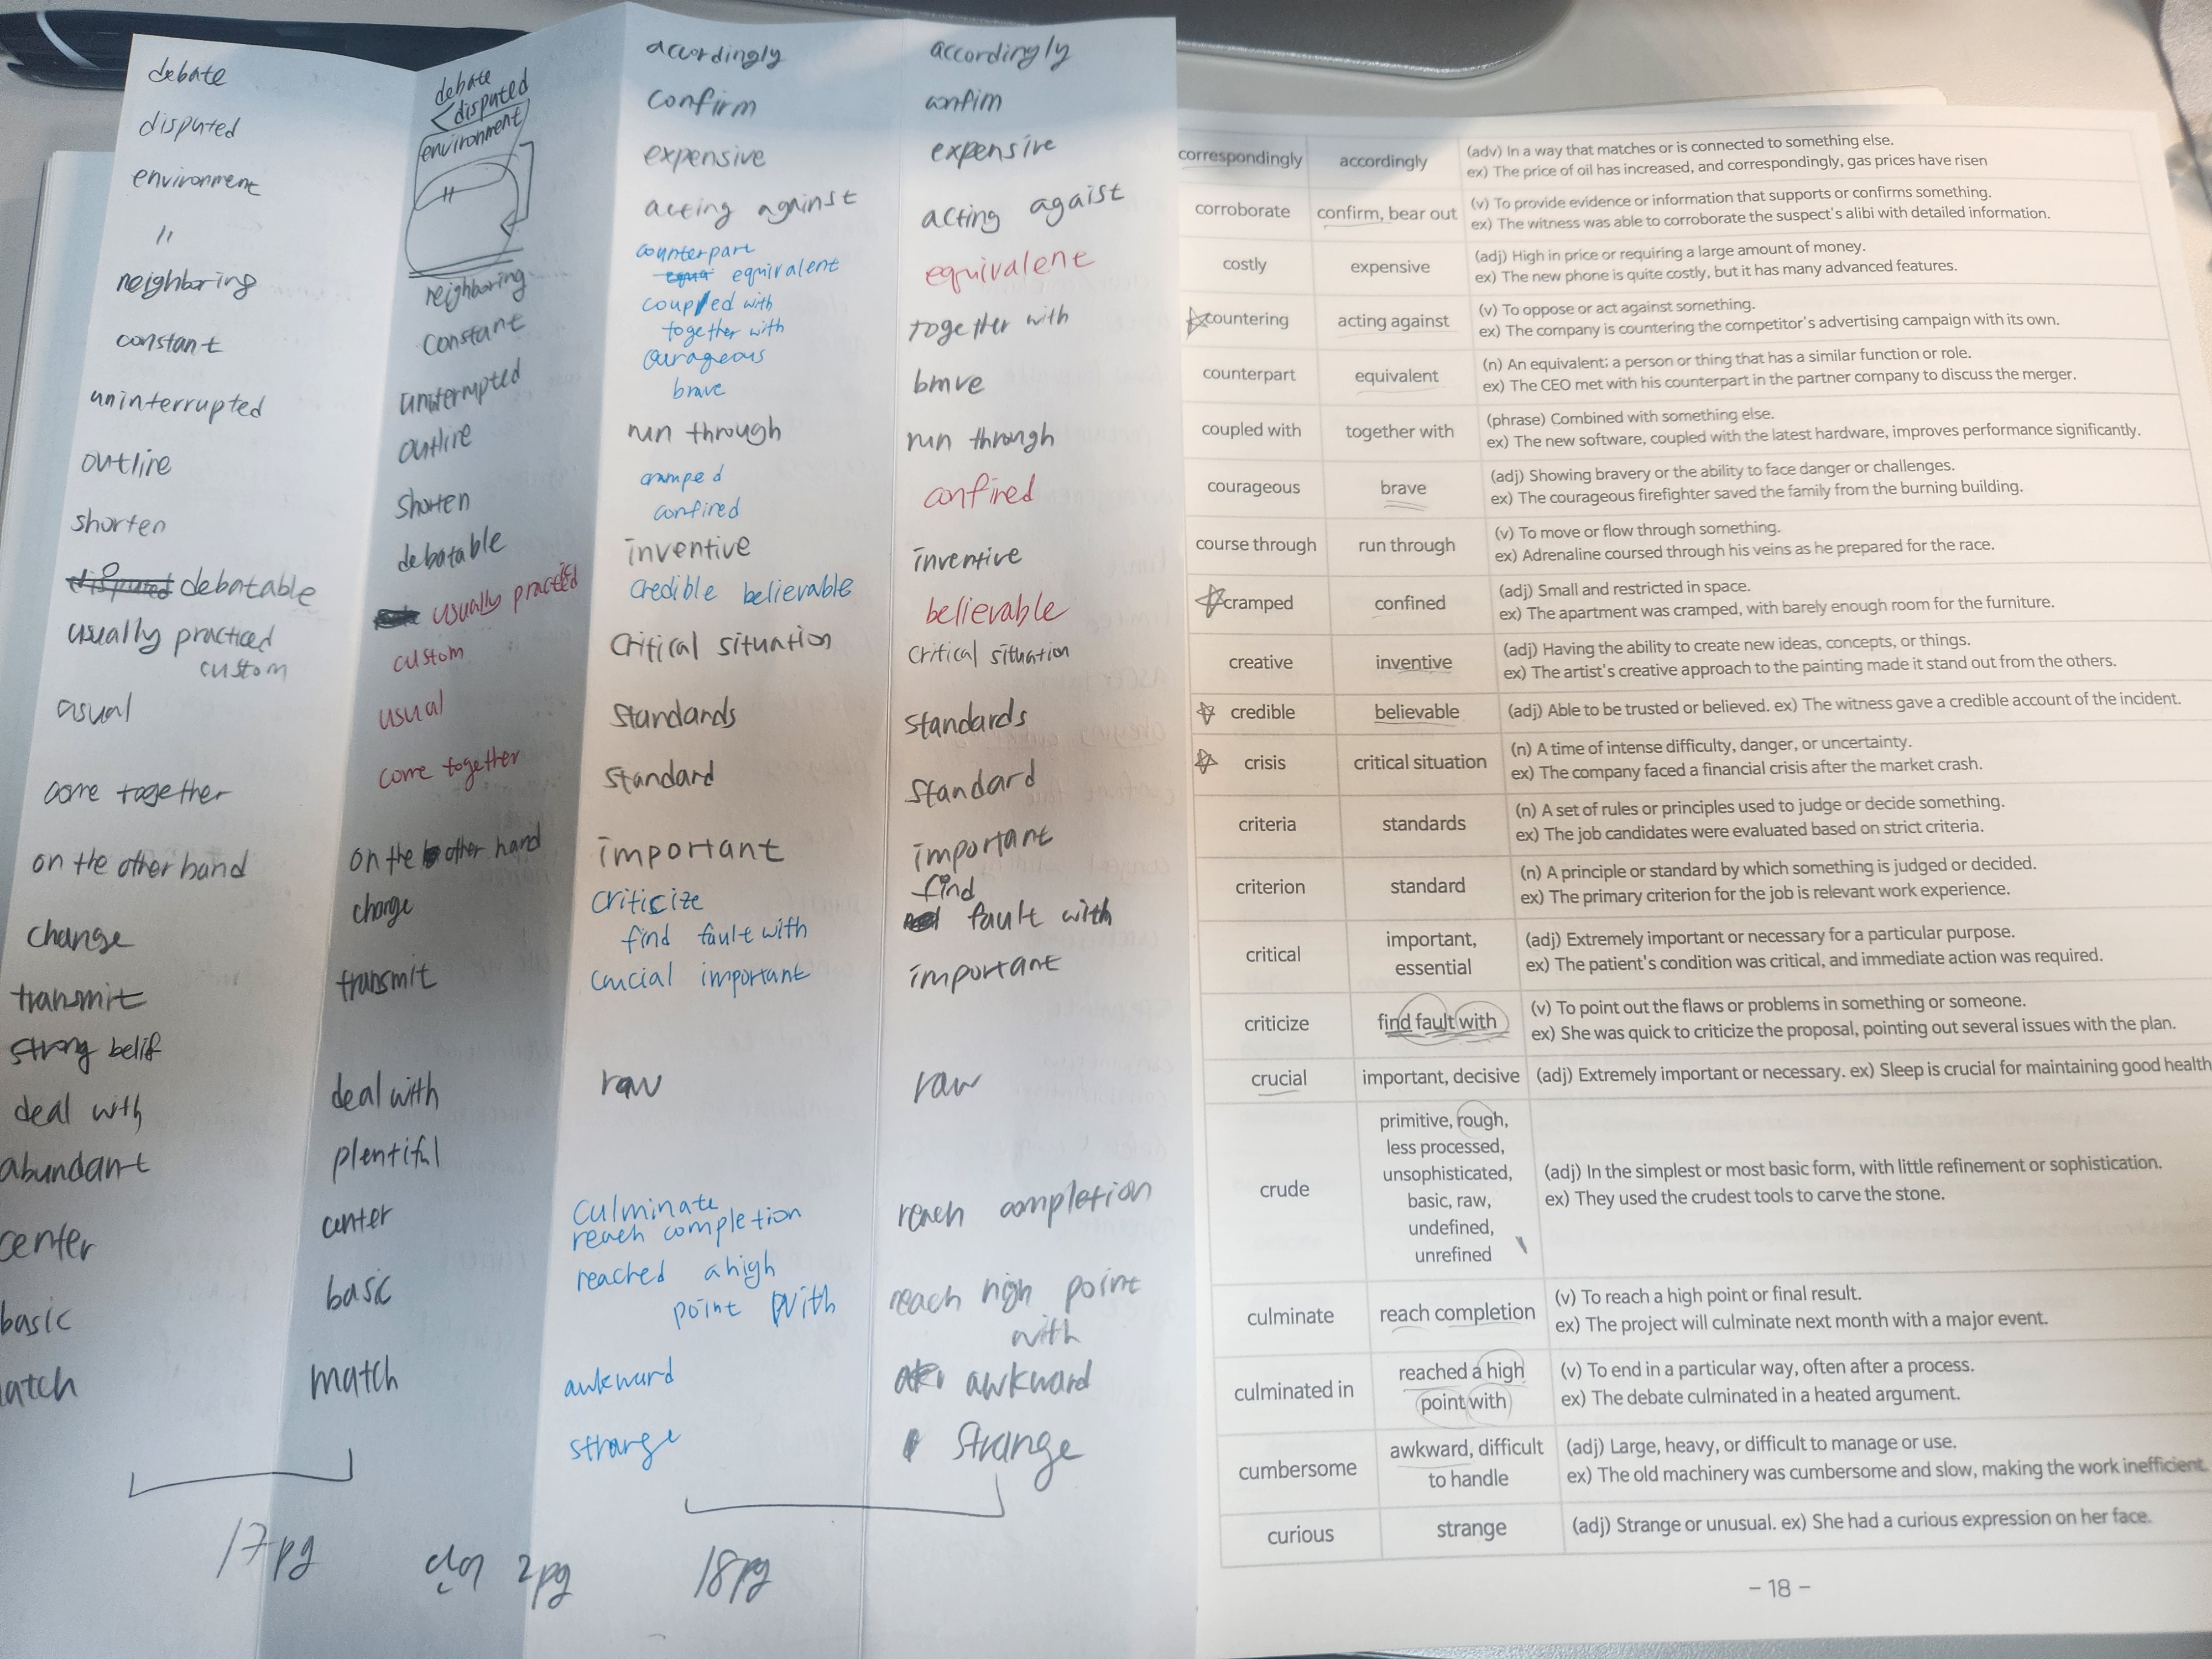 debate
disputed
environment
"
neighboring
constant
uninterrupted
outline
shorten
disputed debatable
usually practiced
custom
asual
come together
on the other hand
change
transmit
strong belif
deal with
abundant
center
basic
atch
17pg
debate
disputed
environment
"
neighboring
constant
uniterrupted
outline
shorten
debatable
usually practiced
custom
usual
come together
on the other hand
change
transmit
deal with
plentiful
center
basic
match
단어 2pg
accordingly
confirm
expensive
acting against
counterpart
equivalent
coupled with
together with
ourageous
brave
run through
cramped
confined
inventive
credible believable
critical situation
standards
standard
important
criticize
find fault with
crucial important
raw
culminate
reach completion
reached a high
point with
awkward
strange
18pg
accordingly
confim
expensive
acting agaist
equivalent
together with
brave
run through
confined
inventive
believable
critical situation
standards
standard
important
find
fault with
important
raw
reach completion
reach high point
with
awkward
strange
correspondingly accordingly (adv) In a way that matches or is connected to something else.
ex) The price of oil has increased, and correspondingly, gas prices have risen
corroborate confirm, bear out (v) To provide evidence or information that supports or confirms something.
ex) The witness was able to corroborate the suspect's alibi with detailed information.
costly expensive (adj) High in price or requiring a large amount of money.
ex) The new phone is quite costly, but it has many advanced features.
countering acting against (v) To oppose or act against something.
ex) The company is countering the competitor's advertising campaign with its own.
counterpart equivalent (n) An equivalent; a person or thing that has a similar function or role.
ex) The CEO met with his counterpart in the partner company to discuss the merger.
coupled with together with (phrase) Combined with something else.
ex) The new software, coupled with the latest hardware, improves performance significantly.
courageous brave (adj) Showing bravery or the ability to face danger or challenges.
ex) The courageous firefighter saved the family from the burning building.
course through run through (v) To move or flow through something.
ex) Adrenaline coursed through his veins as he prepared for the race.
cramped confined (adj) Small and restricted in space.
ex) The apartment was cramped, with barely enough room for the furniture.
creative inventive (adj) Having the ability to create new ideas, concepts, or things.
ex) The artist's creative approach to the painting made it stand out from the others.
credible believable (adj) Able to be trusted or believed. ex) The witness gave a credible account of the incident.
crisis critical situation (n) A time of intense difficulty, danger, or uncertainty.
ex) The company faced a financial crisis after the market crash.
criteria standards (n) A set of rules or principles used to judge or decide something.
ex) The job candidates were evaluated based on strict criteria.
criterion standard (n) A principle or standard by which something is judged or decided.
ex) The primary criterion for the job is relevant work experience.
critical important, essential (adj) Extremely important or necessary for a particular purpose.
ex) The patient's condition was critical, and immediate action was required.
criticize find fault with (v) To point out the flaws or problems in something or someone.
ex) She was quick to criticize the proposal, pointing out several issues with the plan.
crucial important, decisive (adj) Extremely important or necessary. ex) Sleep is crucial for maintaining good health
crude
primitive, rough,
less processed,
unsophisticated,
basic, raw,
undefined,
unrefined
(adj) In the simplest or most basic form, with little refinement or sophistication.
ex) They used the crudest tools to carve the stone.
culminate reach completion (v) To reach a high point or final result.
ex) The project will culminate next month with a major event.
culminated in reached a high point with (v) To end in a particular way, often after a process.
ex) The debate culminated in a heated argument.
cumbersome awkward, difficult to handle (adj) Large, heavy, or difficult to manage or use.
ex) The old machinery was cumbersome and slow, making the work inefficient.
curious strange (adj) Strange or unusual. ex) She had a curious expression on her face.
- 18 -